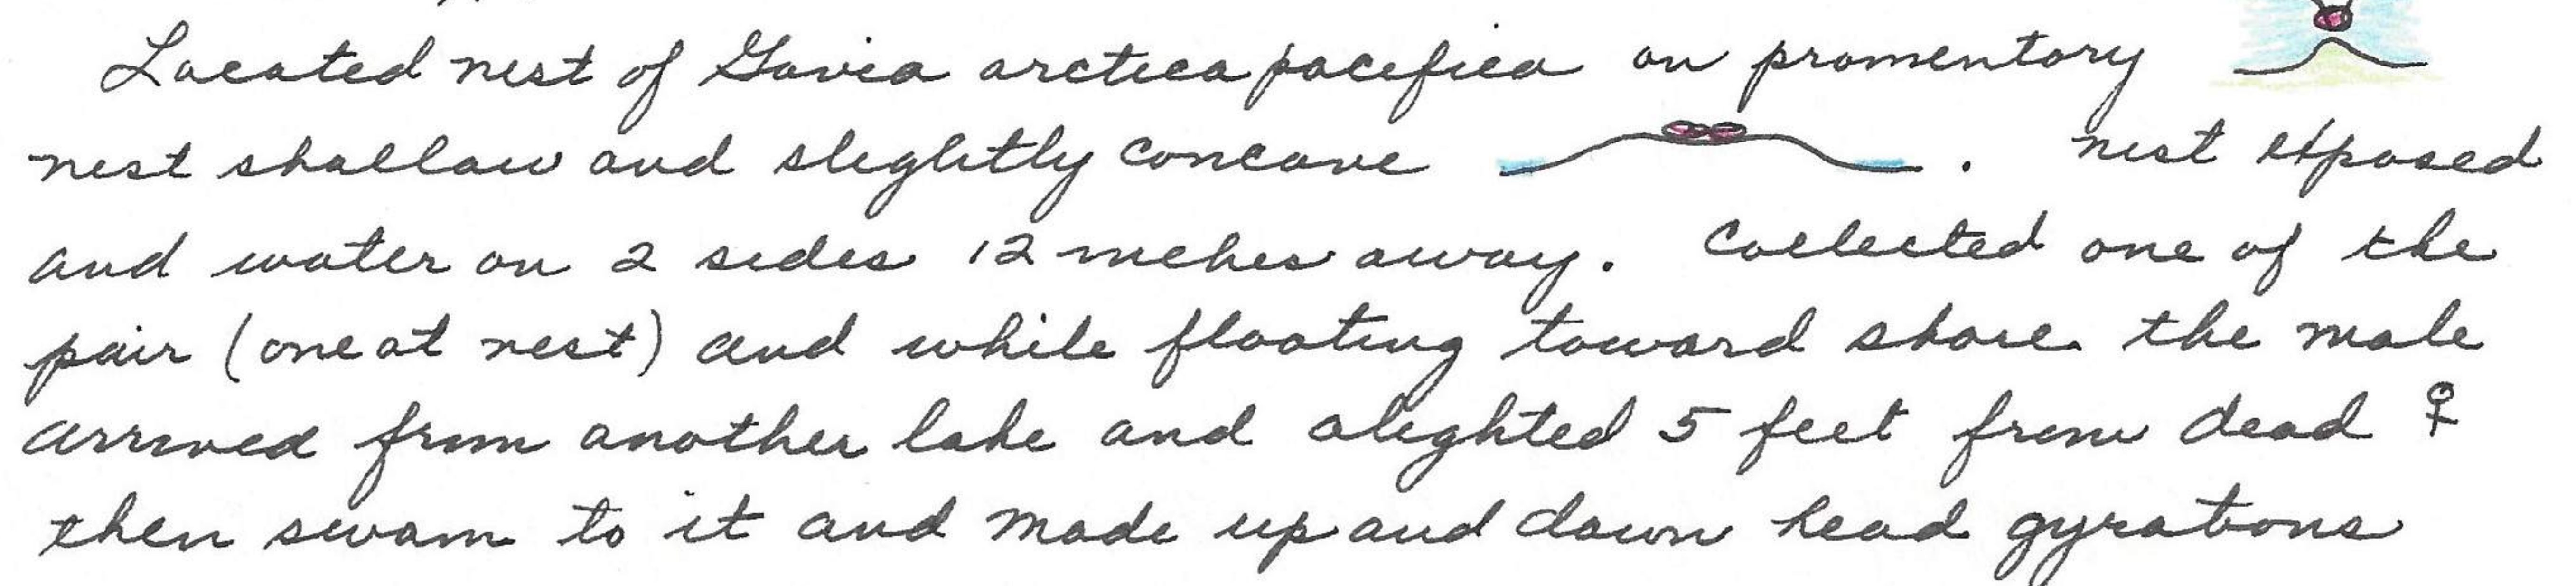 Located nest of Gavia arctica pacifica on promentory
nest shallow and slightly concave . nest exposed
and water on 2 sides 12 inches away. Collected one of the
pair (one at nest) and while floating toward shore the male
arrived from another lake and alighted 5 feet from dead ♀
then swam to it and made up and down head gyrations